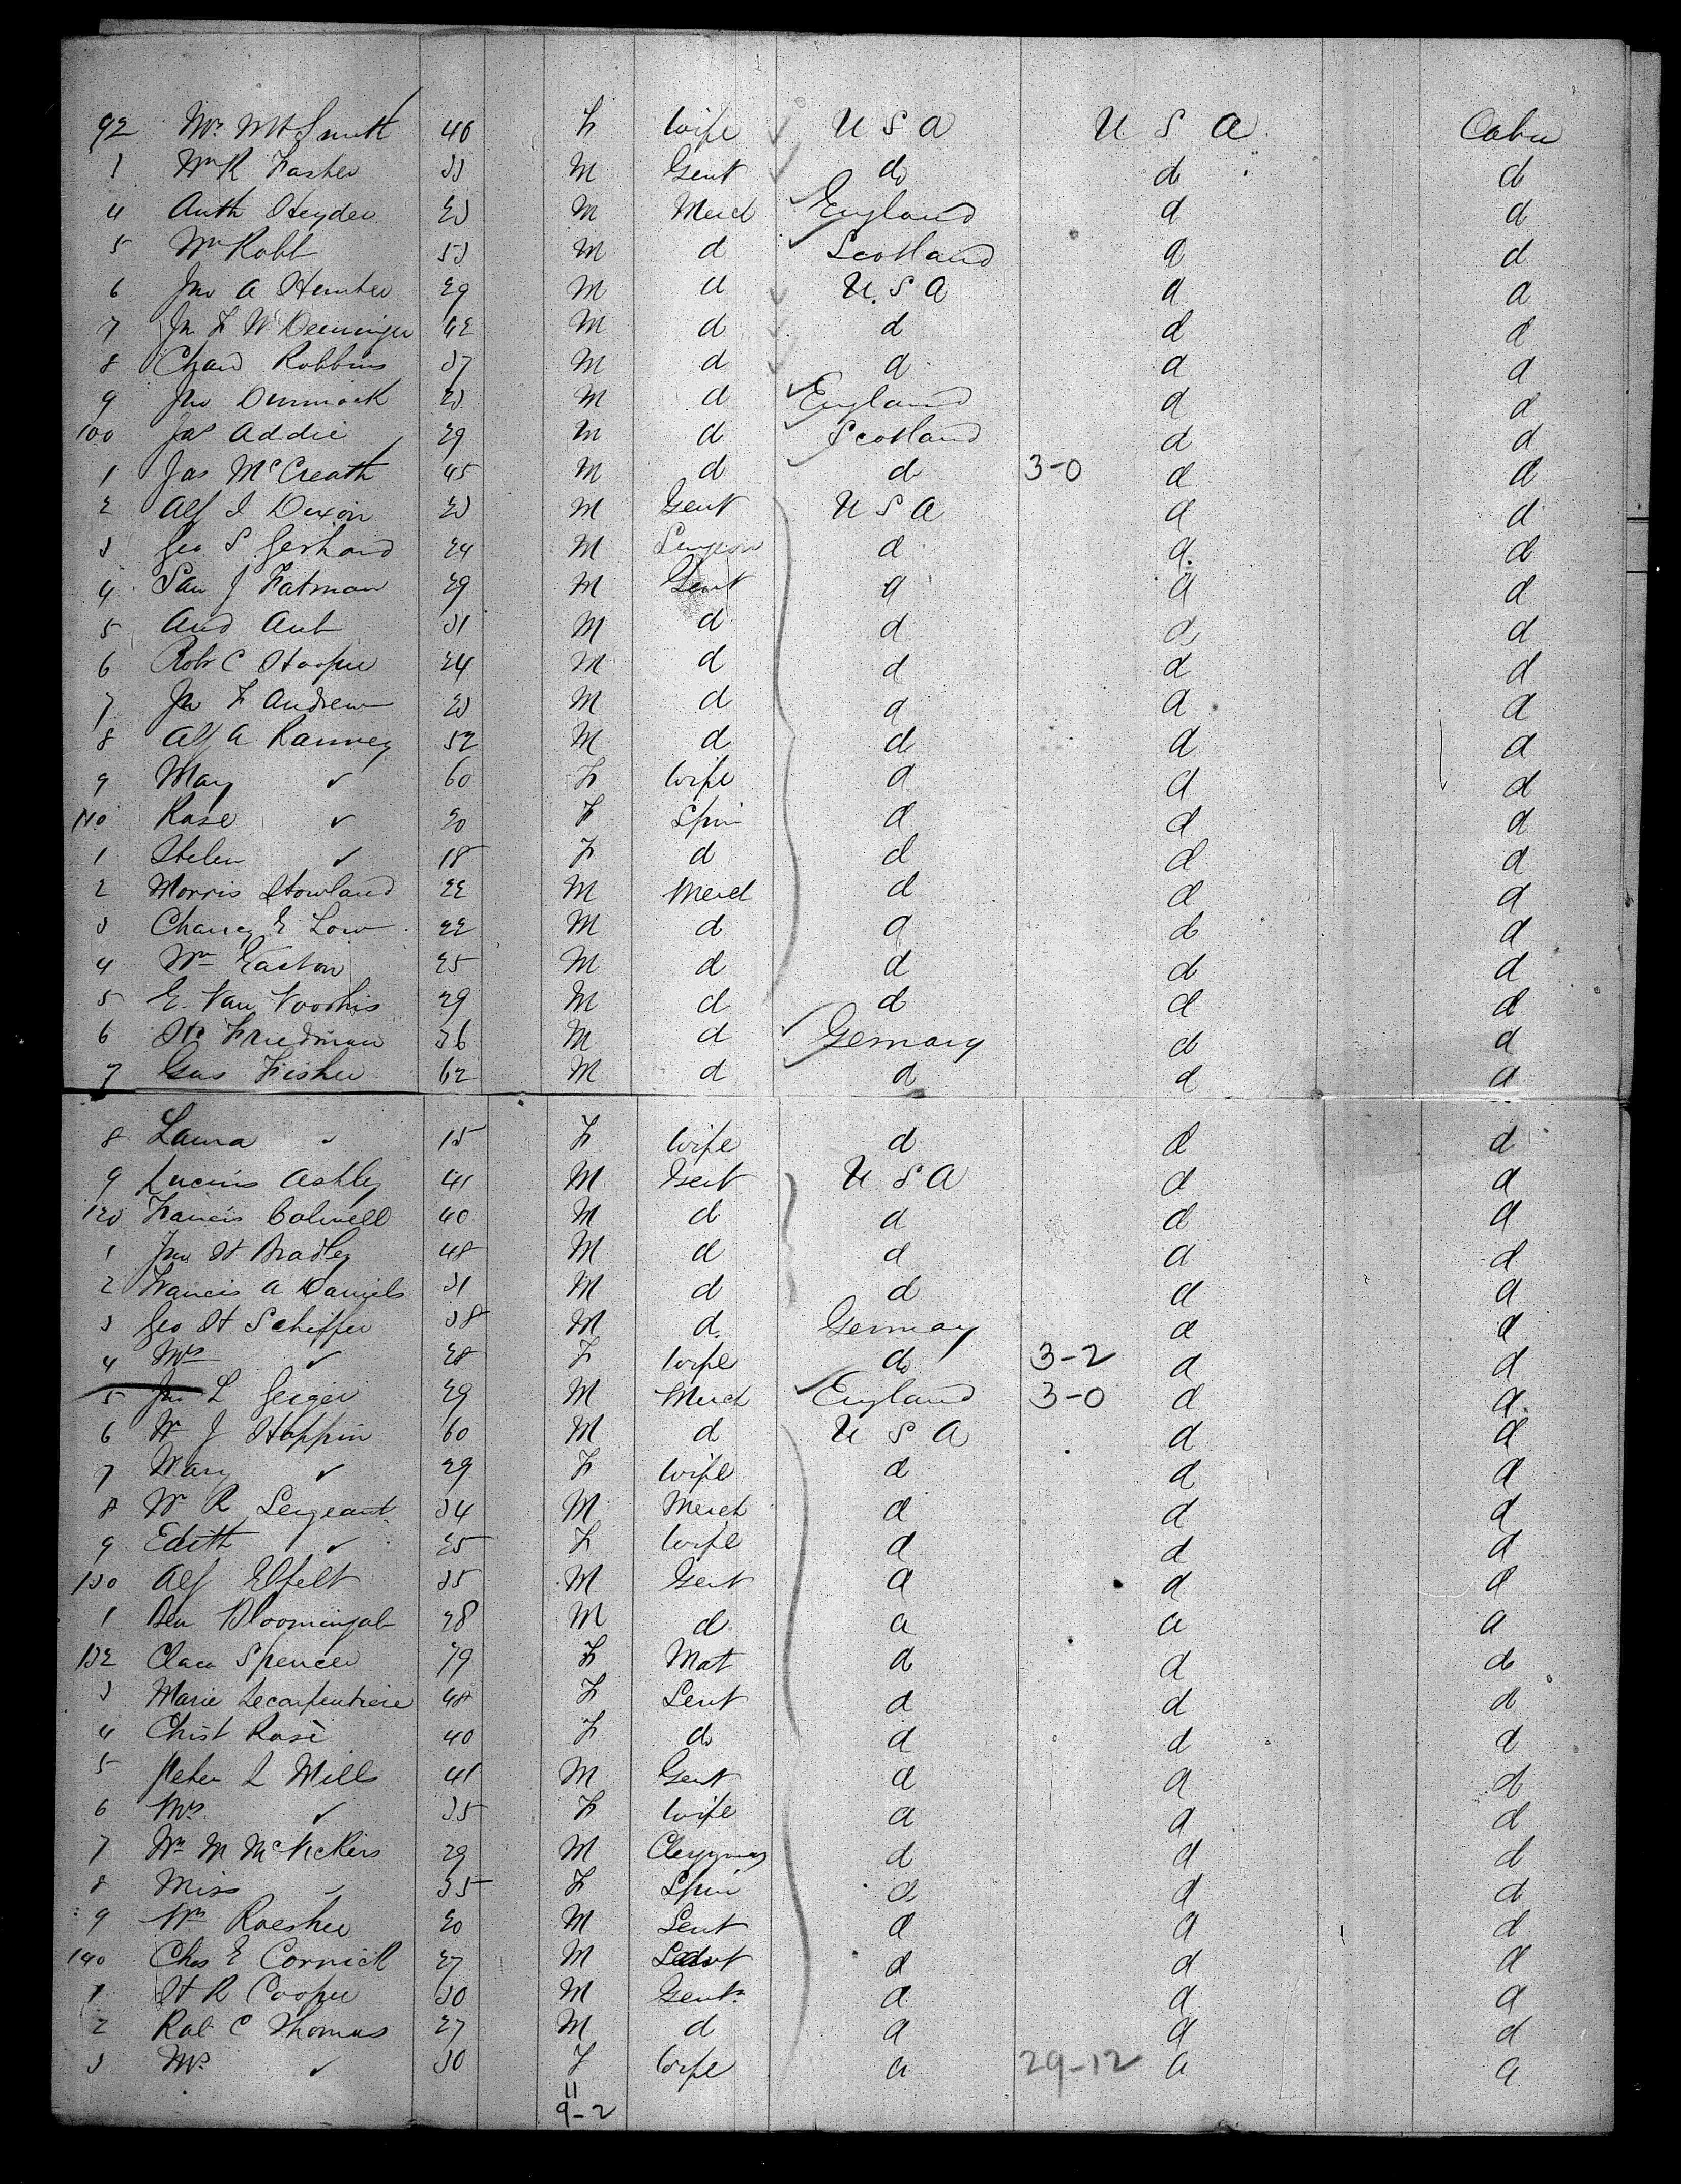 92 Mrs Wm Smith 40 F Wife U S A U S A Cabin
3 Wm R Foster 33 M Gent do d d
4 Auth Heyden 23 M Merch England d d
5 Wm Robb 53 M d Scotland d d
6 Jno A Hunter 29 M d U.S.A d d
7 Jn F W Denninger 42 M d d d d
8 Chan Robbins 37 M d d d d
9 Jno Dimmock 23 M d England d d
100 Jas Addie 29 M d Scotland d d
1 Jas McCreath 45 M d d 3-0 d d
2 Alf I Dixon 23 M Gent U S A d d
3 Geo S Gerhard 24 M Surgeon d d d
4 Sam J Fatman 29 M Gent d d d
5 And Aub 31 M d d d d
6 Robt C Hooper 24 M d d d d
7 Jno F Andrew 23 M d d d d
8 Alf A Ranney 52 M d d d d
9 Mary ✓ 60 F Wife d d d
110 Rose ✓ 20 F Spin d d d
1 Helen ✓ 18 F d d d d
2 Morris Howland 22 M Merch d d d
3 Chancy E Low 22 M d d d d
4 Wm Easton 25 M d d d d
5 E. Van Voorhis 29 M d d d d
6 Hr Friedman 36 M d Germany d d
7 Gus Fisher 62 M d d d d
8 Laura ✓ 15 F Wife d d d
9 Lucius Ashley 41 M Gent U S A d d
120 Francis Colwell 40 M d d d d
1 Jno H Bradley 48 M d d d d
2 Francis A Daniels 31 M d d d d
3 Geo H Schiffer 38 M d. Germany d d
4 Mrs ✓ 28 F Wife do 3-2 d d
5 Jno L Geiger 29 M Merch England 3-0 d d
6 W J Hoppin 60 M d U S A d d
7 Mary ✓ 29 F Wife d d d
8 W R Sergeant 34 M Merch d d d
9 Edith ✓ 25 F Wife d d d
130 Alf Elfelt 35 M Gent d d d
1 Ben Bloomingdale 28 M d d d d
132 Clara Spencer 79 F Mat d d d
3 Marie Lecarpentiere 48 F Sevt d d d
4 Christ Rose 40 F do d d d
5 Peter L Mills 41 M Gent d d d
6 Mrs ✓ 35 F Wife d d d
7 Wm M McVickers 29 M Clergyman d d d
8 Miss ✓ 35 F Spin d d d
9 Wm Roesher 20 M Sevt d d d
140 Chs E Cornick 27 M Sevt d d d
1 H R Cooper 30 M Gent d d d
2 Rob C Thomas 27 M d d d d
3 Mrs ✓ 30 F Wife d 29-12 d d
11
9-2